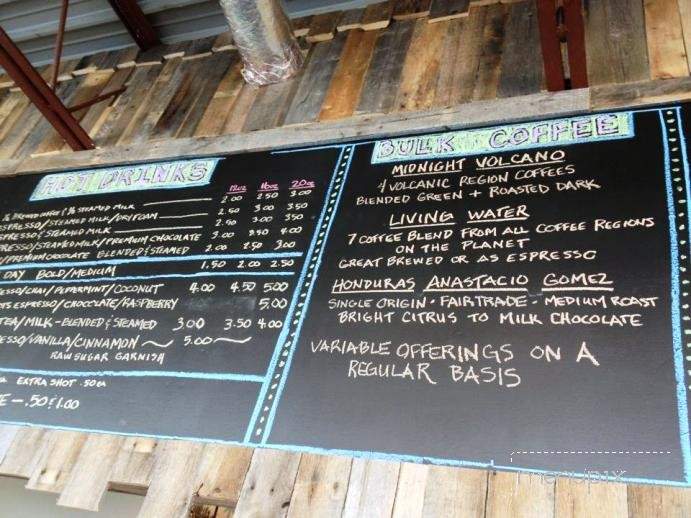 HOT DRINKS
12oz 16oz 20oz
BREWED COFFEE & ½ STEAMED MILK 2.00 2.50 3.00
ESPRESSO/STEAMED MILK/DRY FOAM 2.50 3.00 3.50
ESPRESSO/STEAMED MILK 2.50 3.00 3.50
ESPRESSO/STEAMED MILK/PREMIUM CHOCOLATE 3.00 3.50 4.00
/PREMIUM CHOCOLATE BLENDED & STEAMED 2.00 2.50 3.00
DAY BOLD/MEDIUM 1.50 2.00 2.50
/CHAI/PEPERMINT/COCONUT 4.00 4.50 5.00
ESPRESSO/CHOCOLATE/RASPBERRY 5.00
TEA/MILK - BLENDED & STEAMED 3.00 3.50 4.00
/VANILLA/CINNAMON 5.00
RAW SUGAR GARNISH
EXTRA SHOT .50¢
.50 & 1.00
BULK COFFEE
MIDNIGHT VOLCANO
4 VOLCANIC REGION COFFEES
BLENDED GREEN + ROASTED DARK
LIVING WATER
7 COFFEE BLEND FROM ALL COFFEE REGIONS
ON THE PLANET
GREAT BREWED OR AS ESPRESSO
HONDURAS ANASTACIO GOMEZ
SINGLE ORIGIN - FAIRTRADE - MEDIUM ROAST
BRIGHT CITRUS TO MILK CHOCOLATE
VARIABLE OFFERINGS ON A
REGULAR BASIS
menupix